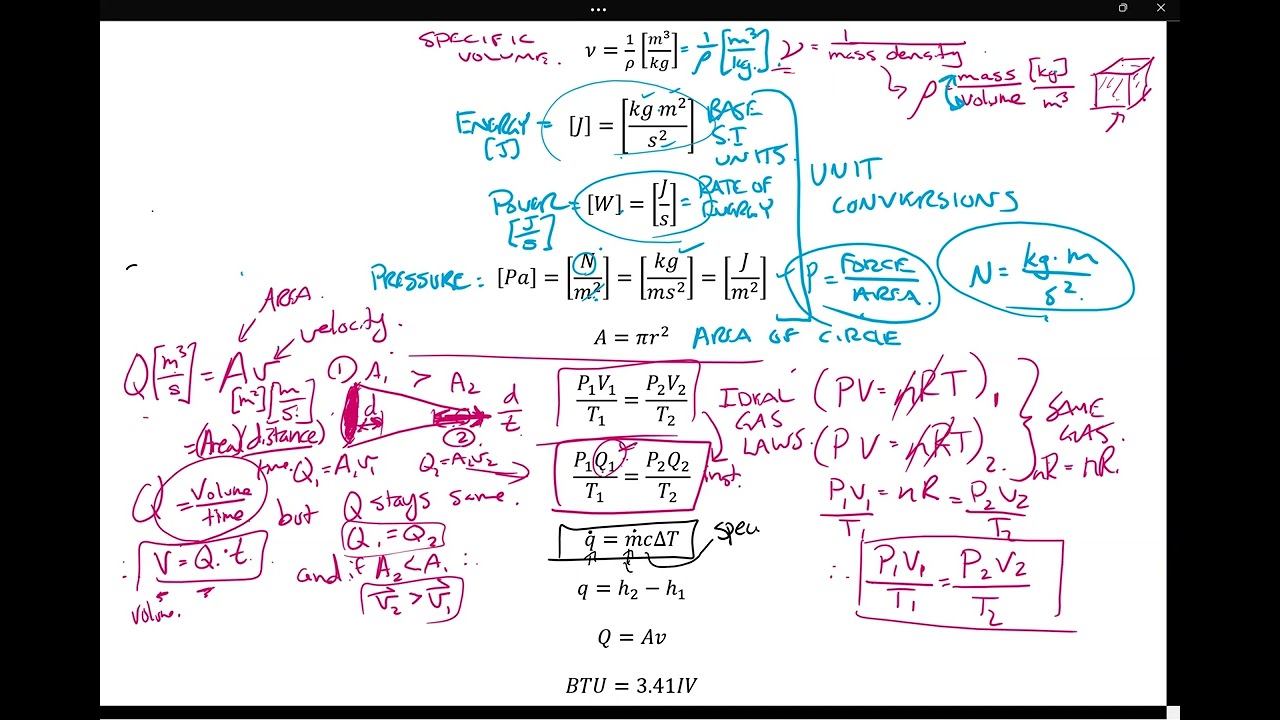 SPECIFIC VOLUME. ν = 1/ρ [m³/kg] = 1/ρ [m³/kg]. ν = 1/mass density
ρ = mass/volume [kg]/m³
ENERGY = [J] [J] = [kg m²/s²] BASE S.I UNITS.
POWER = [J/s] [W] = [J/s] = RATE OF ENERGY
UNIT CONVERSIONS
PRESSURE: [Pa] = [N/m²] = [kg/ms²] = [J/m²] P = FORCE/AREA. N = kg·m/s².
A = πr² AREA OF CIRCLE
AREA.
velocity.
Q[m³/s] = Av
[m²][m/s]
= (Area)(distance)/time.
Q = Volume/time
∴ V = Q·t.
volume.
① A₁ > A₂
d d/t
②
Q₁ = A₁v₁ Q₂ = A₂v₂
but Q stays same.
Q₁ = Q₂
and if A₂ < A₁ ∴
v₂ > v₁
P₁V₁/T₁ = P₂V₂/T₂ IDEAL GAS LAWS.
P₁Q₁/T₁ = P₂Q₂/T₂ inst.
(PV = nRT)₁
(PV = nRT)₂
SAME GAS.
nR = nR.
P₁V₁/T₁ = nR = P₂V₂/T₂
∴ P₁V₁/T₁ = P₂V₂/T₂
q̇ = ṁcΔT spec
q = h₂ − h₁
Q = Av
BTU = 3.41IV